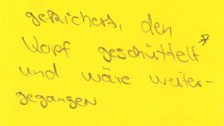 gekichert, den
Kopf geschüttelt
und wäre weiter-
gegangen